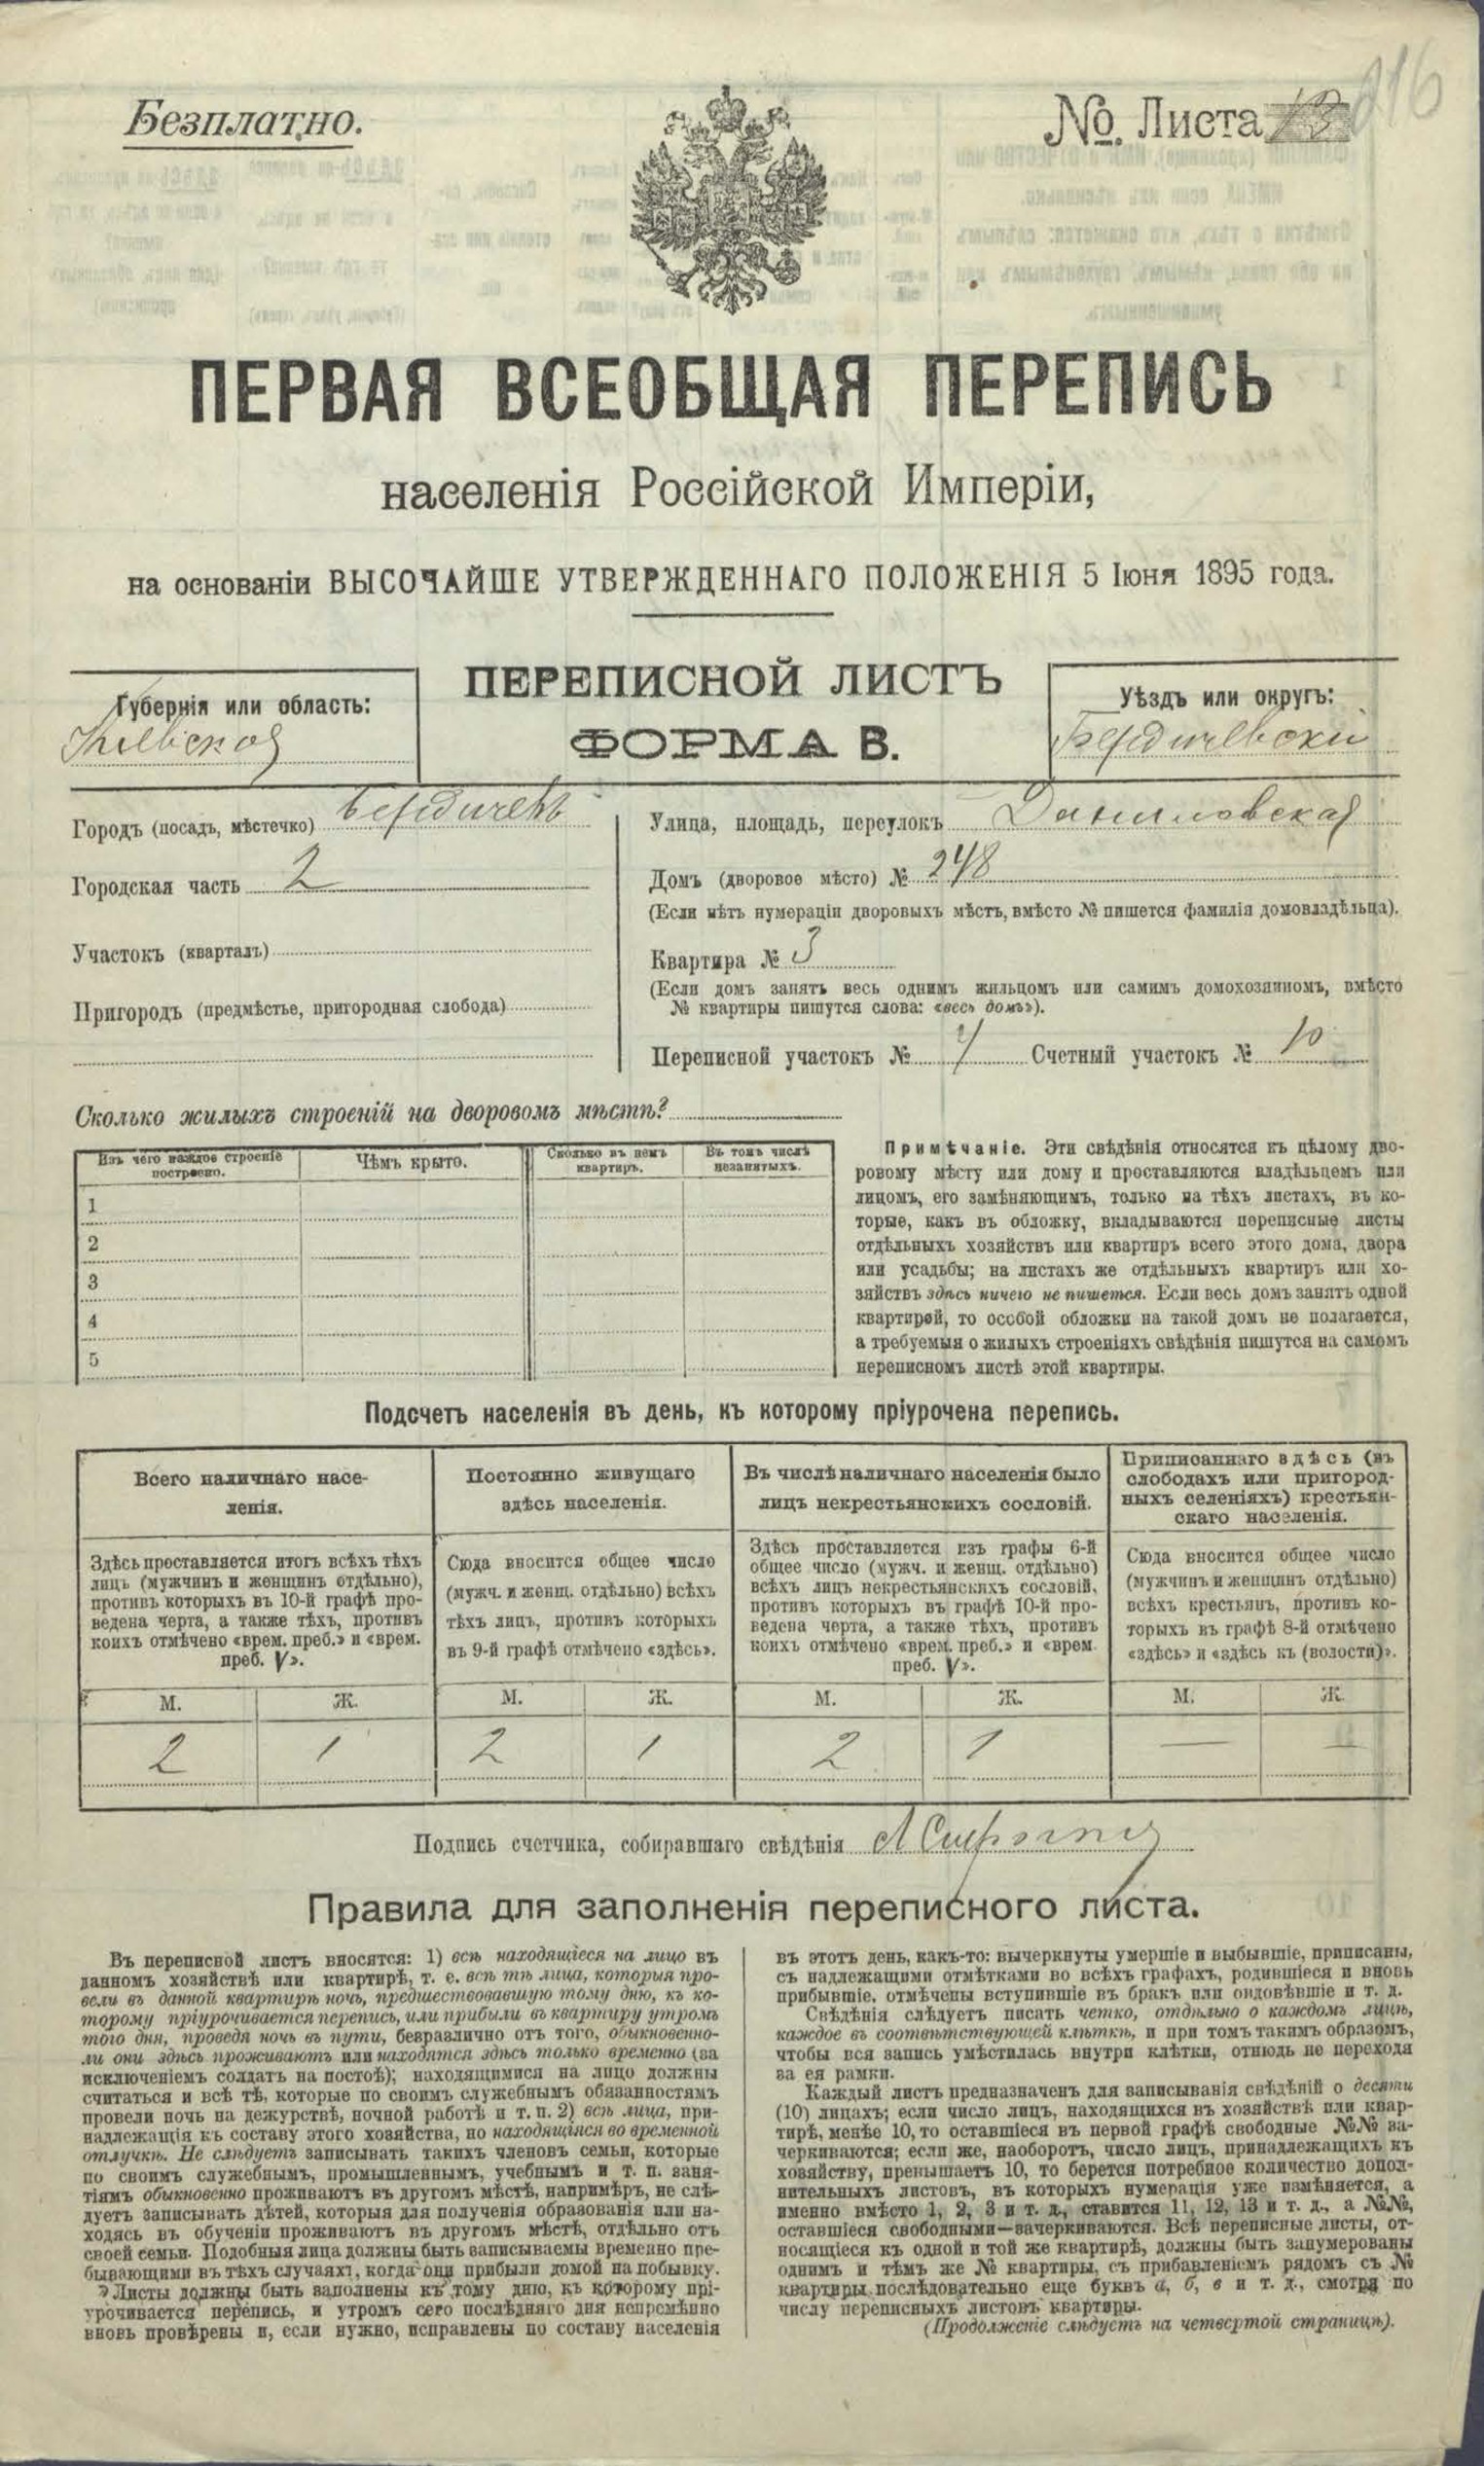 Безплатно.
№. Листа 13
216
ПЕРВАЯ ВСЕОБЩАЯ ПЕРЕПИСЬ
населенія Россійской Имперіи,
на основаніи ВЫСОЧАЙШЕ УТВЕРЖДЕННАГО ПОЛОЖЕНІЯ 5 Іюня 1895 года.
ПЕРЕПИСНОЙ ЛИСТЪ
ФОРМА В.
Губернія или область:
Кіевская
Уѣздъ или округъ:
Бердичевскій
Городъ (посадъ, мѣстечко) Бердичевъ
Городская часть 2
Участокъ (кварталъ)
Пригородъ (предмѣстье, пригородная слобода)
Улица, площадь, переулокъ Даниловская
Домъ (дворовое мѣсто) № 248
(Если нѣтъ нумераціи дворовыхъ мѣстъ, вмѣсто № пишется фамилія домовладѣльца).
Квартира № 3
(Если домъ занятъ весь однимъ жильцомъ или самимъ домохозяиномъ, вмѣсто
№ квартиры пишутся слова: «весь домъ»).
Переписной участокъ № 4 Счетный участокъ № 10
Сколько жилыхъ строеній на дворовомъ мѣстѣ?
Изъ чего каждое строеніе
построено.
Чѣмъ крыто.
Сколько въ немъ
квартиръ.
Въ томъ числѣ
незанятыхъ.
1
2
3
4
5
Примѣчаніе. Эти свѣдѣнія относятся къ цѣлому дво-
ровому мѣсту или дому и проставляются владѣльцемъ или
лицомъ, его замѣняющимъ, только на тѣхъ листахъ, въ ко-
торые, какъ въ обложку, вкладываются переписные листы
отдѣльныхъ хозяйствъ или квартиръ всего этого дома, двора
или усадьбы; на листахъ же отдѣльныхъ квартиръ или хо-
зяйствъ здѣсь ничего не пишется. Если весь домъ занятъ одной
квартирой, то особой обложки на такой домъ не полагается,
а требуемыя о жилыхъ строеніяхъ свѣдѣнія пишутся на самомъ
переписномъ листѣ этой квартиры.
Подсчетъ населенія въ день, къ которому пріурочена перепись.
Всего наличнаго насе-
ленія.
Здѣсь проставляется итогъ всѣхъ тѣхъ
лицъ (мужчинъ и женщинъ отдѣльно),
противъ которыхъ въ 10-й графѣ про-
ведена черта, а также тѣхъ, противъ
коихъ отмѣчено «врем. преб.» и «врем.
преб. V».
Постоянно живущаго
здѣсь населенія.
Сюда вносится общее число
(мужч. и женщ. отдѣльно) всѣхъ
тѣхъ лицъ, противъ которыхъ
въ 9-й графѣ отмѣчено «здѣсь».
Въ числѣ наличнаго населенія было
лицъ некрестьянскихъ сословій.
Здѣсь проставляется изъ графы 6-й
общее число (мужч. и женщ. отдѣльно)
всѣхъ лицъ некрестьянскихъ сословій,
противъ которыхъ въ графѣ 10-й про-
ведена черта, а также тѣхъ, противъ
коихъ отмѣчено «врем. преб.» и «врем.
преб. V».
Приписаннаго здѣсь (въ
слободахъ или пригород-
ныхъ селеніяхъ) крестьян-
скаго населенія.
Сюда вносится общее число
(мужчинъ и женщинъ отдѣльно)
всѣхъ крестьянъ, противъ ко-
торыхъ въ графѣ 8-й отмѣчено
«здѣсь» и «здѣсь къ (волости)».
М. Ж. М. Ж. М. Ж. М. Ж.
2 1 2 1 2 1 — —
Подпись счетчика, собиравшаго свѣдѣнія
Правила для заполненія переписного листа.
Въ переписной листъ вносятся: 1) всѣ находящіеся на лицо въ
данномъ хозяйствѣ или квартирѣ, т. е. всѣ тѣ лица, которыя про-
вели въ данной квартирѣ ночь, предшествовавшую тому дню, къ ко-
торому пріурочивается перепись, или прибыли въ квартиру утромъ
того дня, проведя ночь въ пути, безразлично отъ того, обыкновенно-
ли они здѣсь проживаютъ или находятся здѣсь только временно (за
исключеніемъ солдатъ на постоѣ); находящимися на лицо должны
считаться и всѣ тѣ, которые по своимъ служебнымъ обязанностямъ
провели ночь на дежурствѣ, ночной работѣ и т. п. 2) всѣ лица, при-
надлежащія къ составу этого хозяйства, но находящіяся во временной
отлучкѣ. Не слѣдуетъ записывать такихъ членовъ семьи, которые
по своимъ служебнымъ, промышленнымъ, учебнымъ и т. п. заня-
тіямъ обыкновенно проживаютъ въ другомъ мѣстѣ, напримѣръ, не слѣ-
дуетъ записывать дѣтей, которыя для полученія образованія или на-
ходясь въ обученіи проживаютъ въ другомъ мѣстѣ, отдѣльно отъ
своей семьи. Подобныя лица должны быть записываемы временно пре-
бывающими въ тѣхъ случаяхъ, когда они прибыли домой на побывку.
Листы должны быть заполнены къ тому дню, къ которому прі-
урочивается перепись, и утромъ сего послѣдняго дня непремѣнно
вновь провѣрены и, если нужно, исправлены по составу населенія
въ этотъ день, какъ-то: вычеркнуты умершіе и выбывшіе, приписаны,
съ надлежащими отмѣтками во всѣхъ графахъ, родившіеся и вновь
прибывшіе, отмѣчены вступившіе въ бракъ или овдовѣвшіе и т. д.
Свѣдѣнія слѣдуетъ писать четко, отдѣльно о каждомъ лицѣ,
каждое въ соотвѣтствующей клѣткѣ, и при томъ такимъ образомъ,
чтобы вся запись умѣстилась внутри клѣтки, отнюдь не переходя
за ея рамки.
Каждый листъ предназначенъ для записыванія свѣдѣній о десяти
(10) лицахъ; если число лицъ, находящихся въ хозяйствѣ или квар-
тирѣ, менѣе 10, то оставшіеся въ первой графѣ свободные №№ за-
черкиваются; если же, наоборотъ, число лицъ, принадлежащихъ къ
хозяйству, превышаетъ 10, то берется потребное количество допол-
нительныхъ листовъ, въ которыхъ нумерація уже измѣняется, а
именно вмѣсто 1, 2, 3 и т. д., ставится 11, 12, 13 и т. д., а №№,
оставшіеся свободными—зачеркиваются. Всѣ переписные листы, от-
носящіеся къ одной и той же квартирѣ, должны быть занумерованы
однимъ и тѣмъ же № квартиры, съ прибавленіемъ рядомъ съ №
квартиры послѣдовательно еще буквъ а, б, в и т. д., смотря по
числу переписныхъ листовъ квартиры.
(Продолженіе слѣдуетъ на четвертой страницѣ).